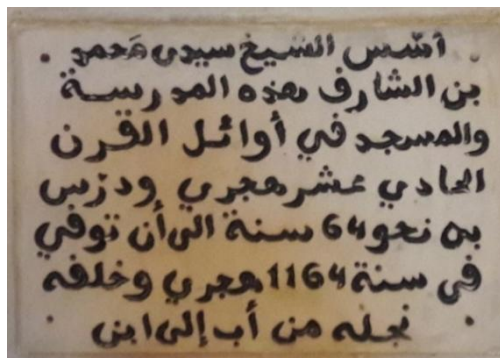 أسّس الشيخ سيدي مَحمد
بن الشارف بهذه المدرسة
والمسجد في أوائل القرن
الحادي عشر هجري ودرّس
به نحو 64 سنة الى أن توفي
في سنة 1164 هجري وخلفه
نجله من أب إلى ابن